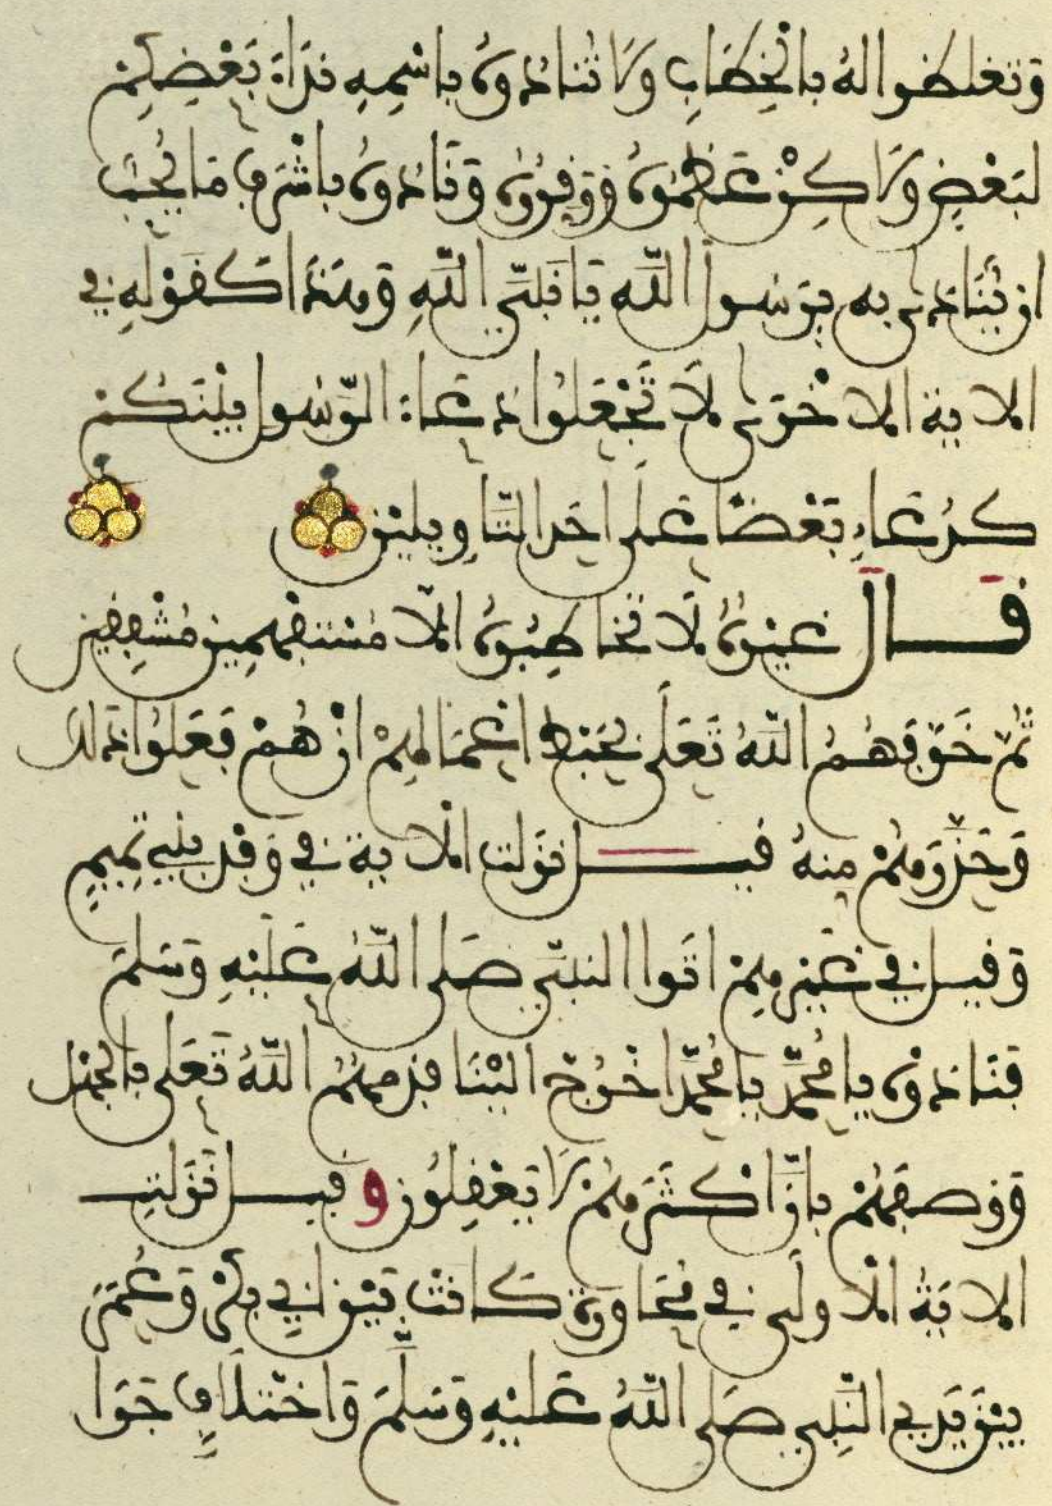 وتغلظوا له بالْخِطَابِ ولَا تُنادوهُ باسْمِهِ نِدَاءَ بَعْضِكُمْ
لبَعْضٍ ولَاكِنْ عَظِّمُوهُ ووَقِّرُوهُ وَنَادُوهُ باشْرَفِ مَا يُحِبُّ
ان يُنَادَى به يرَسُولَ اللَّه يَا نَبِيَّ اللَّهِ وَهَذَا كَقَوْلِهِ فِي
الاية الاخْرَى لَا تَجْعَلُوا دُعَاءَ الرَّسُولِ بَيْنَكُمْ
كدُعَاءِ بَعْضًا عَلَى احَدِ التَّاوِيلَيْنِ
قَالَ غَيْرُهُ لَا تُخَاطِبُوهُ الَّا مُسْتَفْهِمِينَ مُشْفِقِينَ
ثُمَّ خَوَّفَهُمُ اللَّهُ تَعَلَى بحَبْطِ اعْمَالِهِمْ انْ هُمْ فَعَلُوا ذَالكَ
وَحَذَّرَهُمْ مِنهُ قيل نَزَلت الْاية في وَفْدِ بَنِي تَمِيمٍ
وَقيل في غَيْرِهِمْ اتَوا النبيَّ صَلى اللَّهُ عَلَيْهِ وَسَلمَ
فَنَادَوْهُ يا مُحَمَّد يا مُحَمَّد اخْرُجْ الَيْنَا فذمهُمُ اللَّهُ تَعَلَى بالجَهْلِ
ووصفَهُمْ بأنَّ اكْثَرَهُمْ لَا يَعْقِلُونَ و قيل نَزَلتِ
الايَةُ الْاولَى في مُحَاوَرَةٍ كَانَتْ بَيْنَ ابِي بَكْرٍ وَعُمَرَ
بَيْنَ يَدَيِ النَّبِي صَلى اللَّهُ عَلَيْهِ وَسَلَّمَ وَاخْتلَافٍ جَرَا